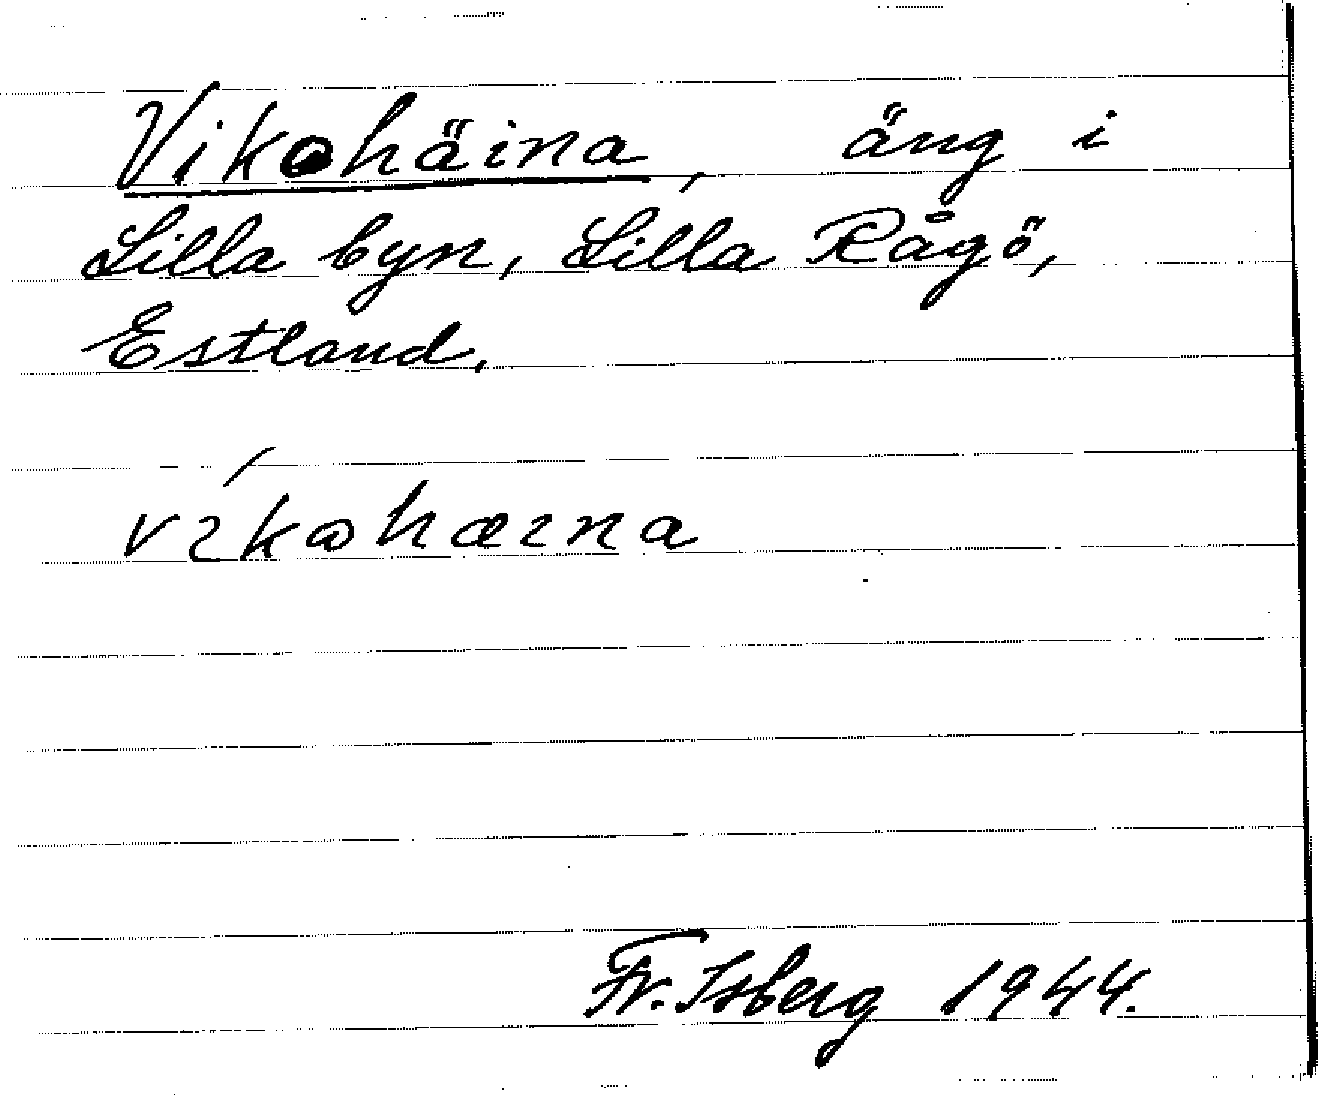 Vikohäina, äng i
Lilla byn, Lilla Rågö,
Estland.
víkahæina
Fr. Isberg 1944.